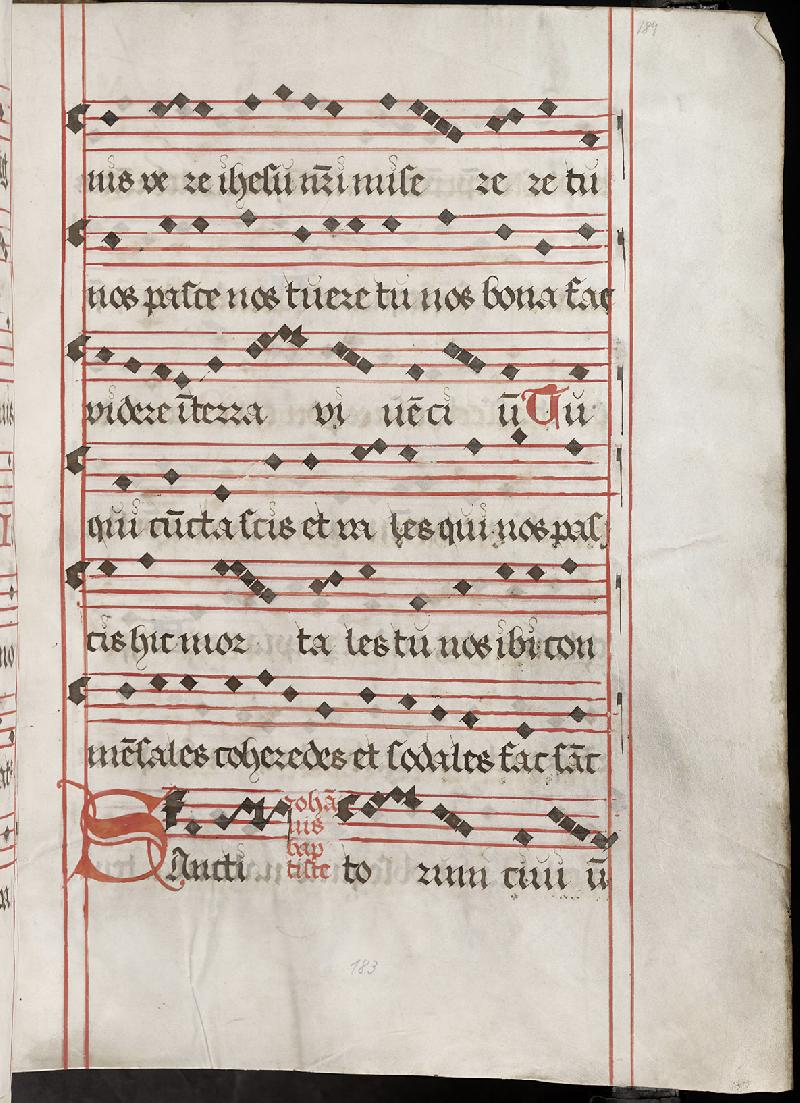 184
nis ve re ihesu nr̄i mise re re tu
nos pasce nos tuere tu nos bona fac
videre īterra vi uēci ū Tu
qui cūcta scis et va les qui nos pas
cis hic mor ta les tu nos ibi con
mēsales coheredes et sodales fac sāc
Sancti to rum ciui ū
Johā
nis
bap
tiste
183